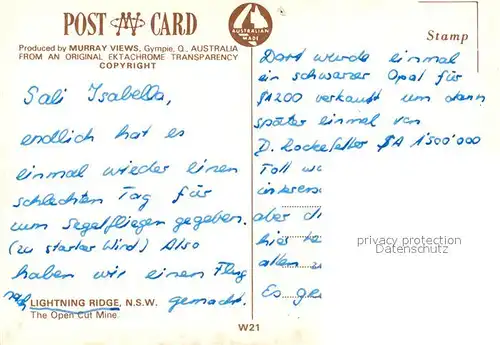 POST CARD
AUSTRALIAN MADE
Stamp
Produced by MURRAY VIEWS, Gympie, Q., AUSTRALIA
FROM AN ORIGINAL EKTACHROME TRANSPARENCY
COPYRIGHT
Sali Isabella,
endlich hat es
einmal wieder einen
schlechten Tag für
zum Segelfliegen gegeben.
(zu starker Wind) Also
haben wir einen Flug
nach LIGHTNING RIDGE, N.S.W. gemacht.
The Open Cut Mine.
Dort wurde einmal
ein schwarzer Opal für
$A200 verkauft um dann
später einmal von
D. Rockefeller $A 1'500'000
Toll
aber di
hier
allem
Es
privacy protection
Datenschutz
W21